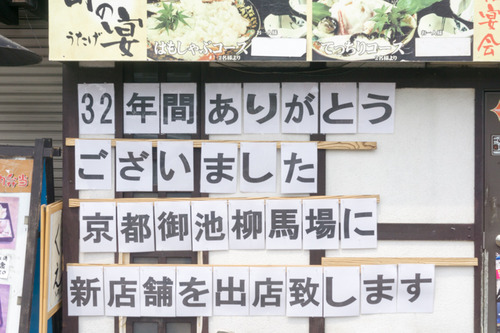 の宴
うたげ
はもしゃぶコース
2名様より
てっちりコース
2名様より
宴会
32年間ありがとう
ございました
京都御池柳馬場に
新店舗を出店致します